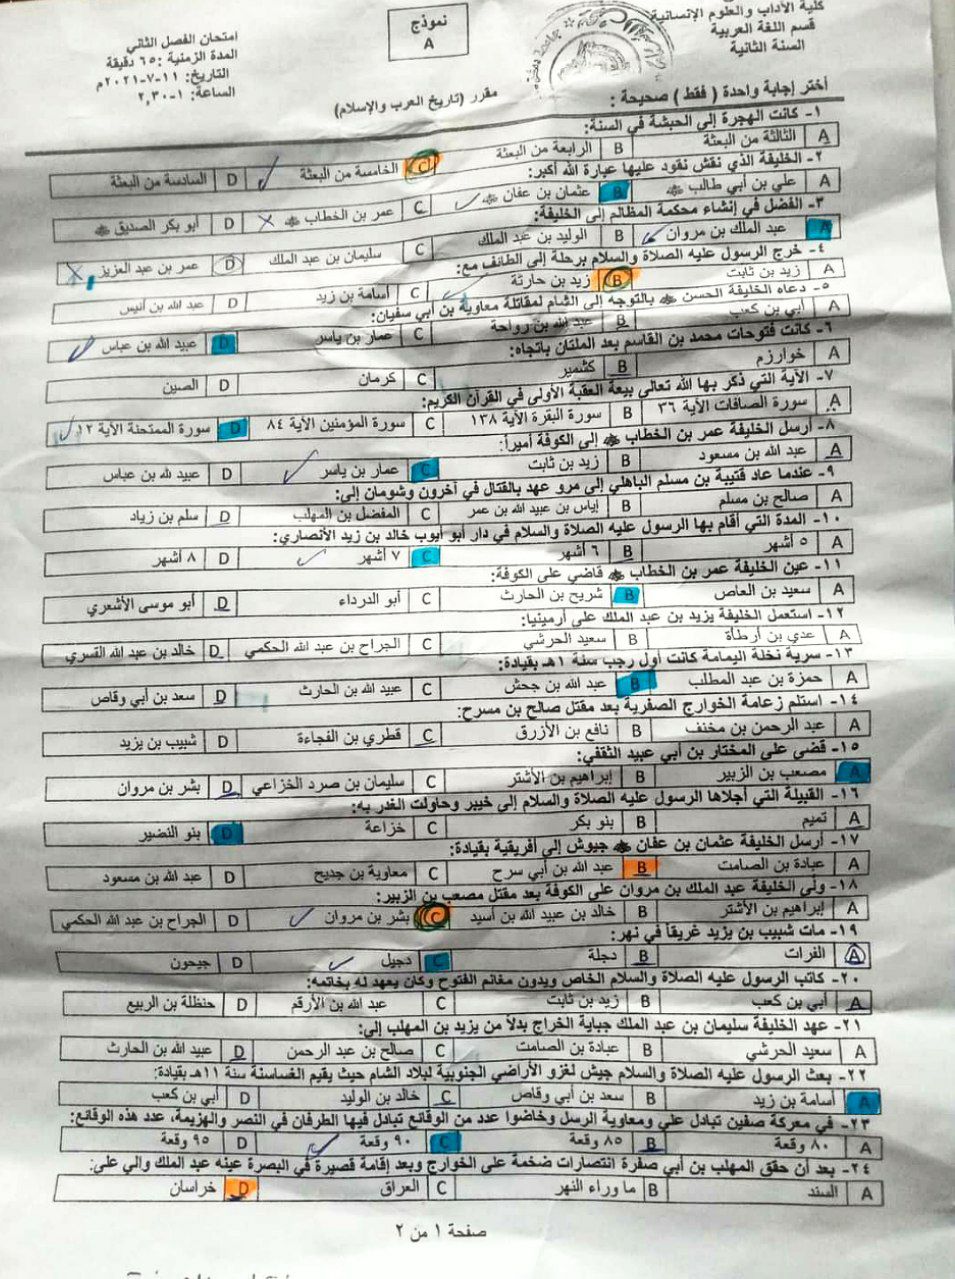 كلية الآداب والعلوم الإنسانية
قسم اللغة العربية
السنة الثانية
نموذج
A
امتحان الفصل الثاني
المدة الزمنية: ٦٥ دقيقة
التاريخ: ١١-٧-٢٠٢١م
الساعة: ١-٢,٣٠
مقرر (تاريخ العرب والإسلام)
أختر إجابة واحدة ( فقط ) صحيحة :
١- كانت الهجرة إلى الحبشة في السنة:
A الثالثة من البعثة B الرابعة من البعثة C الخامسة من البعثة D السادسة من البعثة
٢- الخليفة الذي نقش نقود عليها عبارة الله أكبر:
A علي بن أبي طالب B عثمان بن عفان C عمر بن الخطاب D أبو بكر الصديق
٣- الفضل في إنشاء محكمة المظالم إلى الخليفة:
A عبد الملك بن مروان B الوليد بن عبد الملك C سليمان بن عبد الملك D عمر بن عبد العزيز
٤- خرج الرسول عليه الصلاة والسلام برحلة إلى الطائف مع:
A زيد بن ثابت B زيد بن حارثة C أسامة بن زيد D عبد الله بن أنيس
٥- دعاه الخليفة الحسن بالتوجه إلى الشام لمقاتلة معاوية بن أبي سفيان:
A أبي بن كعب B عبد الله بن رواحة C عمار بن ياسر D عبيد الله بن عباس
٦- كانت فتوحات محمد بن القاسم بعد الملتان باتجاه:
A خوارزم B كشمير C كرمان D الصين
٧- الآية التي ذكر بها الله تعالى بيعة العقبة الأولى في القرآن الكريم:
A سورة الصافات الآية ٣٦ B سورة البقرة الآية ١٣٨ C سورة المؤمنين الآية ٨٤ D سورة الممتحنة الآية ١٢
٨- أرسل الخليفة عمر بن الخطاب إلى الكوفة أميراً:
A عبد الله بن مسعود B زيد بن ثابت C عمار بن ياسر D عبيد لله بن عباس
٩- عندما عاد قتيبة بن مسلم الباهلي إلى مرو عهد بالقتال في آخرون وشومان إلى:
A صالح بن مسلم B إياس بن عبيد الله بن عمر C المفضل بن المهلب D سلم بن زياد
١٠- المدة التي أقام بها الرسول عليه الصلاة والسلام في دار أبو أيوب خالد بن زيد الأنصاري:
A ٥ أشهر B ٦ أشهر C ٧ أشهر D ٨ أشهر
١١- عين الخليفة عمر بن الخطاب قاضي على الكوفة:
A سعيد بن العاص B شريح بن الحارث C أبو الدرداء D أبو موسى الأشعري
١٢- استعمل الخليفة يزيد بن عبد الملك على أرمينيا:
A عدي بن أرطأة B سعيد الحرشي C الجراح بن عبد الله الحكمي D خالد بن عبد الله القسري
١٣- سرية نخلة اليمامة كانت أول رجب سنة ١هـ بقيادة:
A حمزة بن عبد المطلب B عبد الله بن جحش C عبيد الله بن الحارث D سعد بن أبي وقاص
١٤- استلم زعامة الخوارج الصفرية بعد مقتل صالح بن مسرح:
A عبد الرحمن بن مخنف B نافع بن الأزرق C قطري بن الفجاءة D شبيب بن يزيد
١٥- قضى على المختار بن أبي عبيد الثقفي:
A مصعب بن الزبير B إبراهيم بن الأشتر C سليمان بن صرد الخزاعي D بشر بن مروان
١٦- القبيلة التي أجلاها الرسول عليه الصلاة والسلام إلى خيبر وحاولت الغدر به:
A تميم B بنو بكر C خزاعة D بنو النضير
١٧- أرسل الخليفة عثمان بن عفان جيوش إلى أفريقية بقيادة:
A عبادة بن الصامت B عبد الله بن أبي سرح C معاوية بن جديح D عبد الله بن مسعود
١٨- ولى الخليفة عبد الملك بن مروان على الكوفة بعد مقتل مصعب بن الزبير:
A إبراهيم بن الأشتر B خالد بن عبيد الله بن أسيد C بشر بن مروان D الجراح بن عبد الله الحكمي
١٩- مات شبيب بن يزيد غريقاً في نهر:
A الفرات B دجلة C دجيل D جيحون
٢٠- كاتب الرسول عليه الصلاة والسلام الخاص ويدون مغانم الفتوح وكان يعهد له بخاتمه:
A أبي بن كعب B زيد بن ثابت C عبد الله بن الأرقم D حنظلة بن الربيع
٢١- عهد الخليفة سليمان بن عبد الملك جباية الخراج بدلاً من يزيد بن المهلب إلى:
A سعيد الحرشي B عبادة بن الصامت C صالح بن عبد الرحمن D عبيد الله بن الحارث
٢٢- بعث الرسول عليه الصلاة والسلام جيش لغزو الأراضي الجنوبية لبلاد الشام حيث يقيم الغساسنة سنة ١١هـ بقيادة:
A أسامة بن زيد B سعد بن أبي وقاص C خالد بن الوليد D أبي بن كعب
٢٣- في معركة صفين تبادل علي ومعاوية الرسل وخاضوا عدد من الوقائع تبادل فيها الطرفان في النصر والهزيمة، عدد هذه الوقائع:
A ٨٠ وقعة B ٨٥ وقعة C ٩٠ وقعة D ٩٥ وقعة
٢٤- بعد أن حقق المهلب بن أبي صفرة انتصارات ضخمة على الخوارج وبعد إقامة قصيرة في البصرة عينه عبد الملك والي على:
A السند B ما وراء النهر C العراق D خراسان
صفحة ١ من ٢